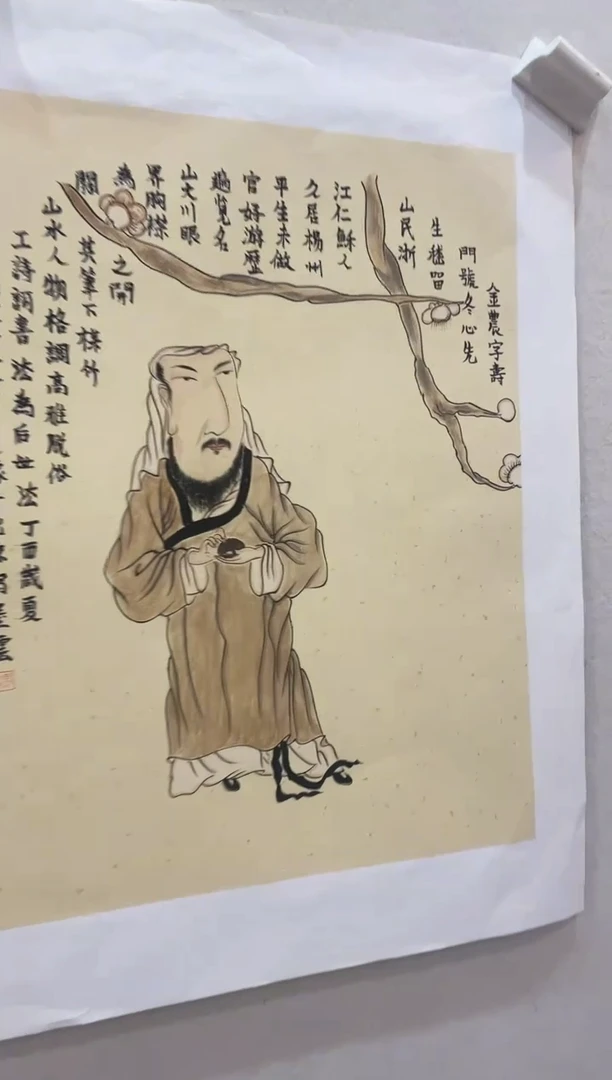 金農字壽
門號冬心先
生嵇留
山民浙
江仁穌人
久居楊州
平生未做
官好游歷
遍覧名
山大川眼
界胸襟
為之開
闊
其筆下楳竹
山水人物格調高雅脱俗
工詩詞書法為后世法丁酉歳夏